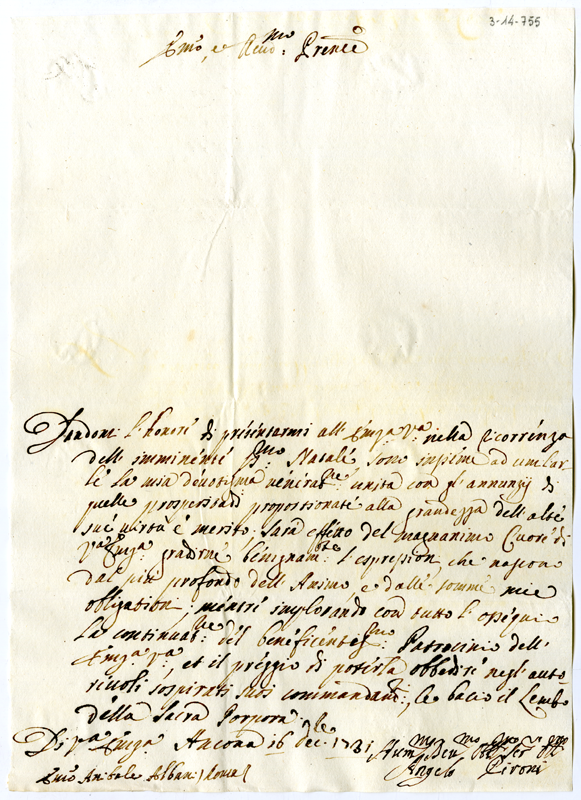 3-14-755
Em:o, e Reu:mo Prencē
Dandomi l'honore di presentarmi all' Em:za V:ra nella ricorrenza
dell' imminente SS:mo Natale, sono insieme ad umiliar
le la mia deuotissma venerat:ne unita con gl'annunzij di
quelle prosperità proportionate alla grandezza dell' alte
sue uirtù e merito. Sarà effetto del magnanimo Cuore di
V:ra Em:za gradirne benignam:te l'espressioni, che nascono
dal più profondo dell' Animo, e dalle somme mie
obligationi; mentre implorando con tutto l'ossequio
la continuat:ne del beneficentiss:mo Patrocinio dell'
Em:za V:ra, et il preggio di poterla obbedire negl' auto
reuoli sospirati suoi commandam:ti, le bacio il Lembo
della Sacra Porpora
Di V:ra Em:za Ancona 16 Xbre 1731 Hum:mo Deu:mo Obl:mo Ser:re
Em:o Anibale Albani, Roma Angelo Pironi